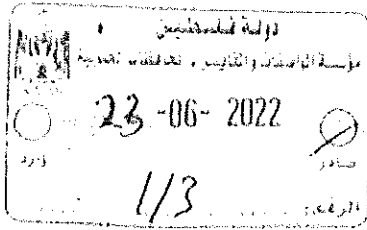 دولة فلسطين
مؤسسة المواصفات والمقاييس
23 -06- 2022
وارد
صادر
الرقم:
1/3